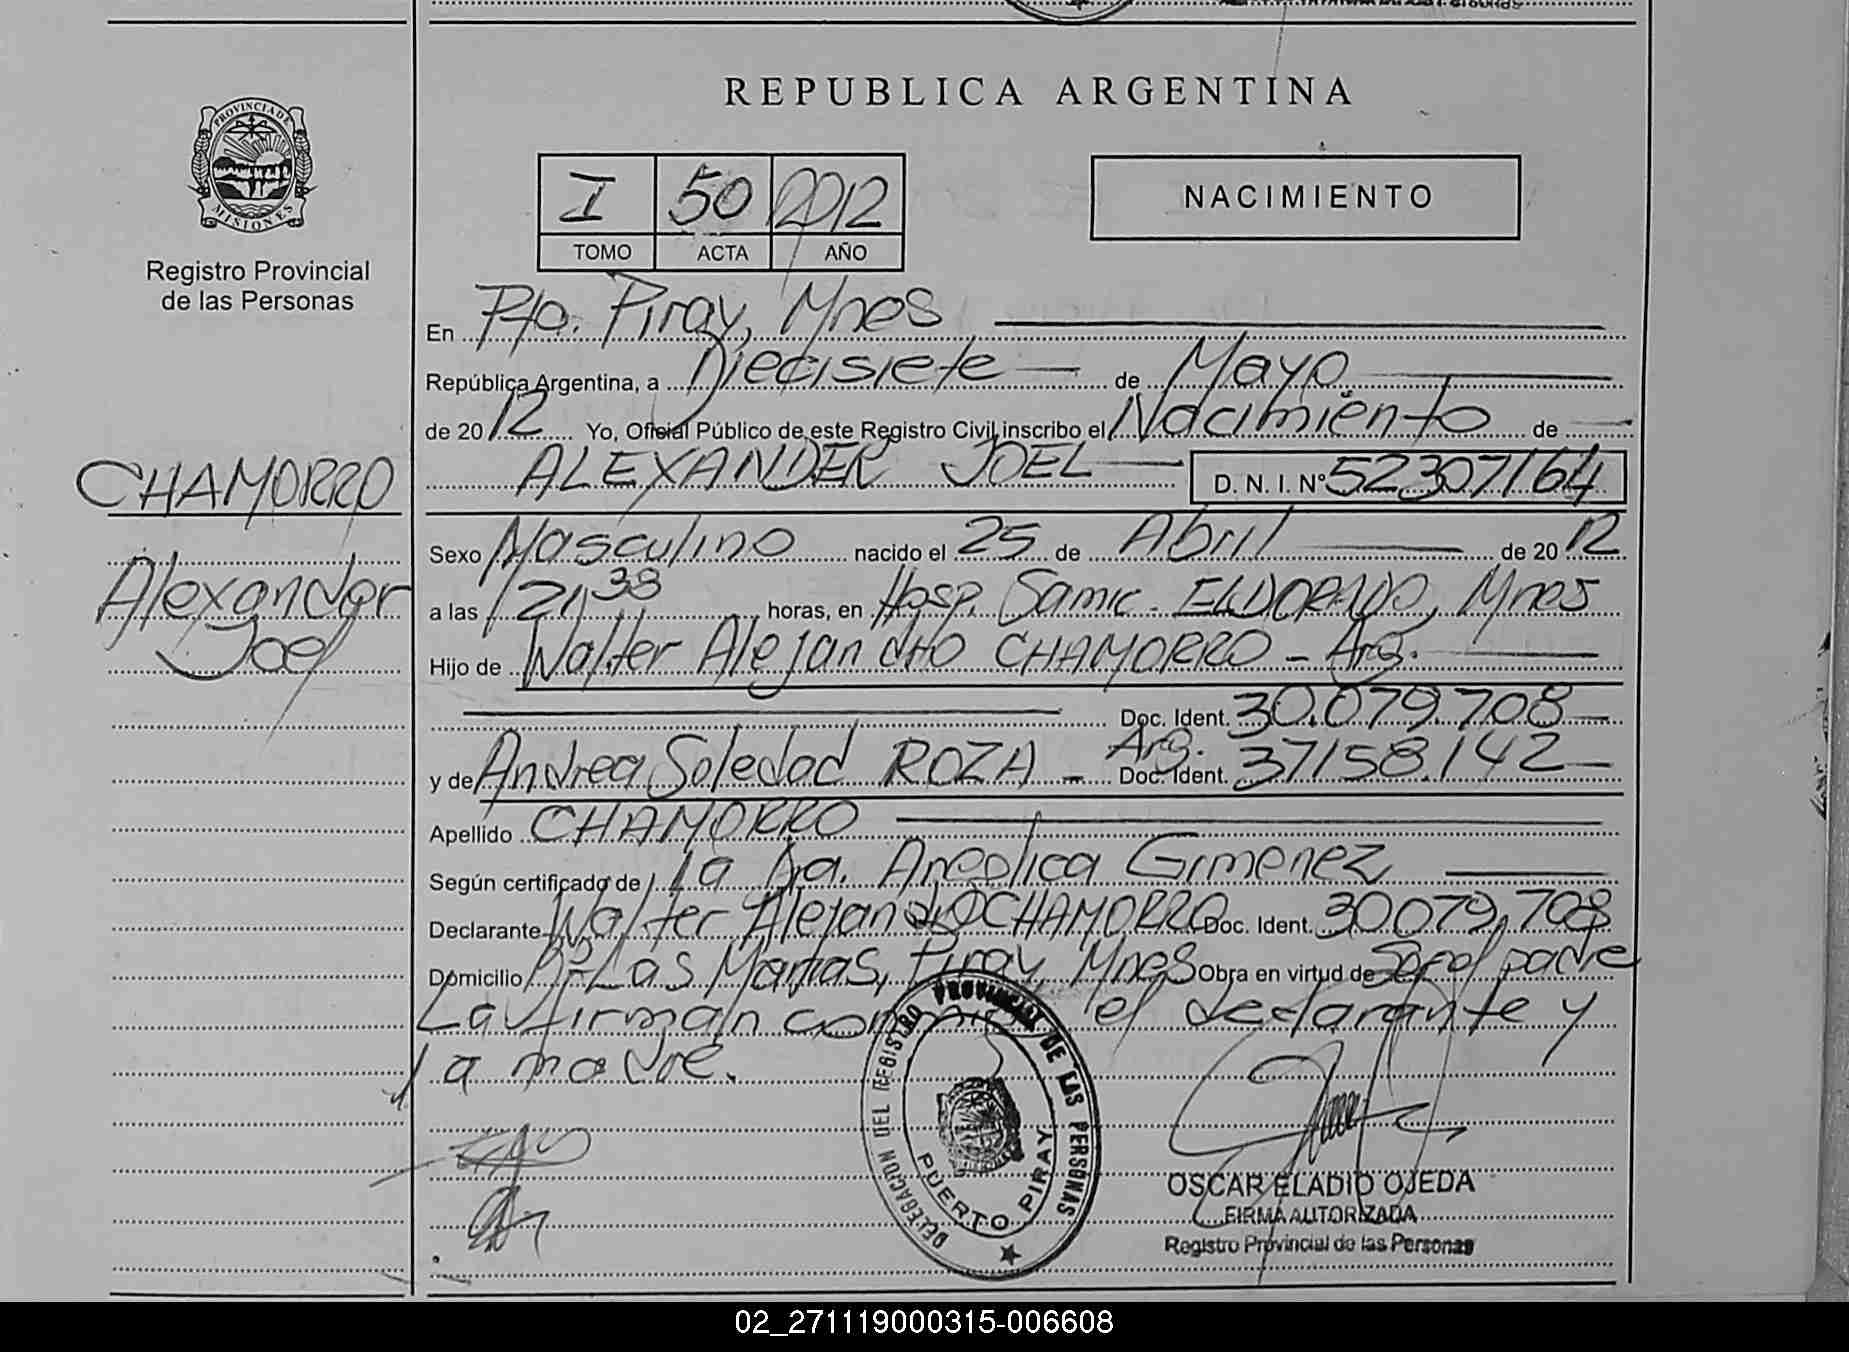 REPUBLICA ARGENTINA
PROVINCIA DE MISIONES
Registro Provincial
de las Personas
I 50 2012
TOMO ACTA AÑO
NACIMIENTO
CHAMORRO
Alexander
Joel
En Pto. Piray, Mnes
República Argentina, a Diecisiete de Mayo
de 2012 Yo, Oficial Público de este Registro Civil inscribo el Nacimiento de
ALEXANDER JOEL D. N. I. N° 52307164
Sexo Masculino nacido el 25 de Abril de 2012
a las 21 38 horas, en Hosp. Samic. ELDORADO, Mnes
Hijo de Walter Alejandro CHAMORRO - Arg.
Doc. Ident. 30.079.708
y de Andrea Soledad ROZA - Arg. Doc. Ident. 37158.142
Apellido CHAMORRO
Según certificado de la Dra. Angelica Gimenez
Declarante Walter Alejandro CHAMORRO Doc. Ident. 30079.708
Domicilio B° Las Martas, Piray, Mnes Obra en virtud de Ser el padre
La firman conmigo el declarante y
la madre.
DELEGACION DEL REGISTRO PROVINCIAL DE LAS PERSONAS
PUERTO PIRAY
OSCAR ELADIO OJEDA
FIRMA AUTORIZADA
Registro Provincial de las Personas
02_271119000315-006608